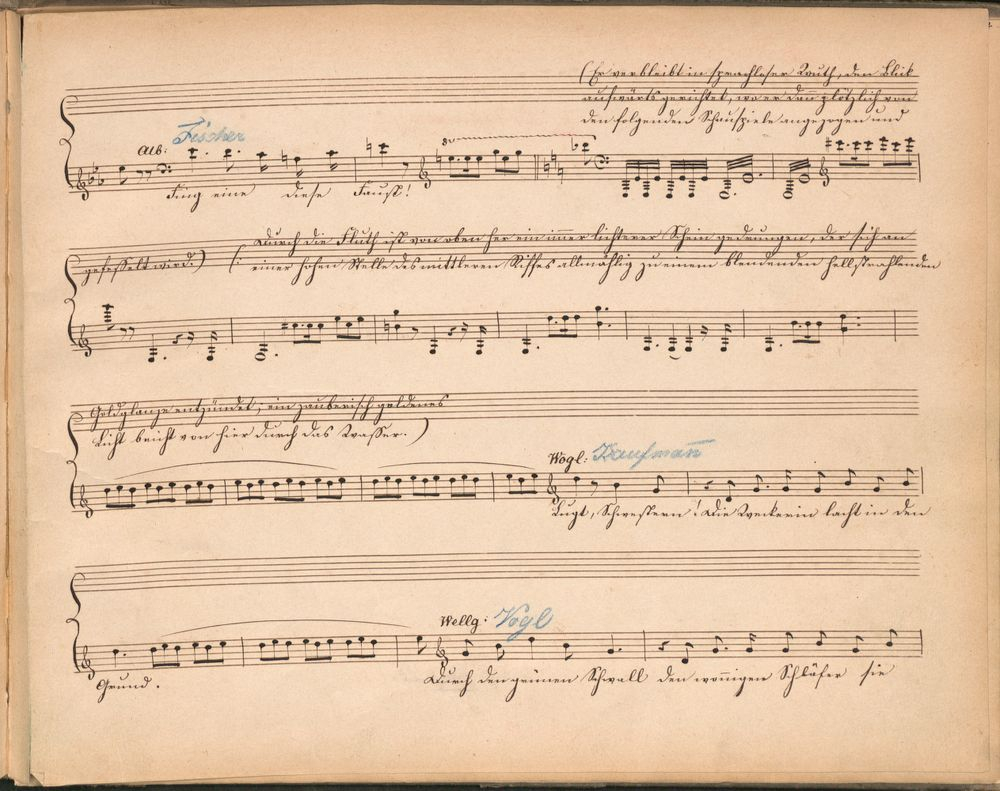 (Er verbleibt in sprachloser Wuth, den Blick
aufwärts gerichtet, wo er dann plötzlich von
den folgenden Schauspiele angezogen und
Fischer
Alb:
8va
Fing eine diese Faust!
Durch die Fluth ist von oben her ein immer lichterer Schein gedrungen, der sich an
gefesselt wird.) (: einer hohen Stelle des mittleren Riffes allmählig zu einem blendenden hellstrahlenden
Goldglanze entzündet; ein zauberisch goldenes
Licht bricht von hier durch das Wasser.)
Wogl: Kaufmann
Lugt, Schwestern! Die Weckerin lacht in den
Wellg: Vogl
Grund. Durch den grünen Schwall den wonnigen Schläfer sie